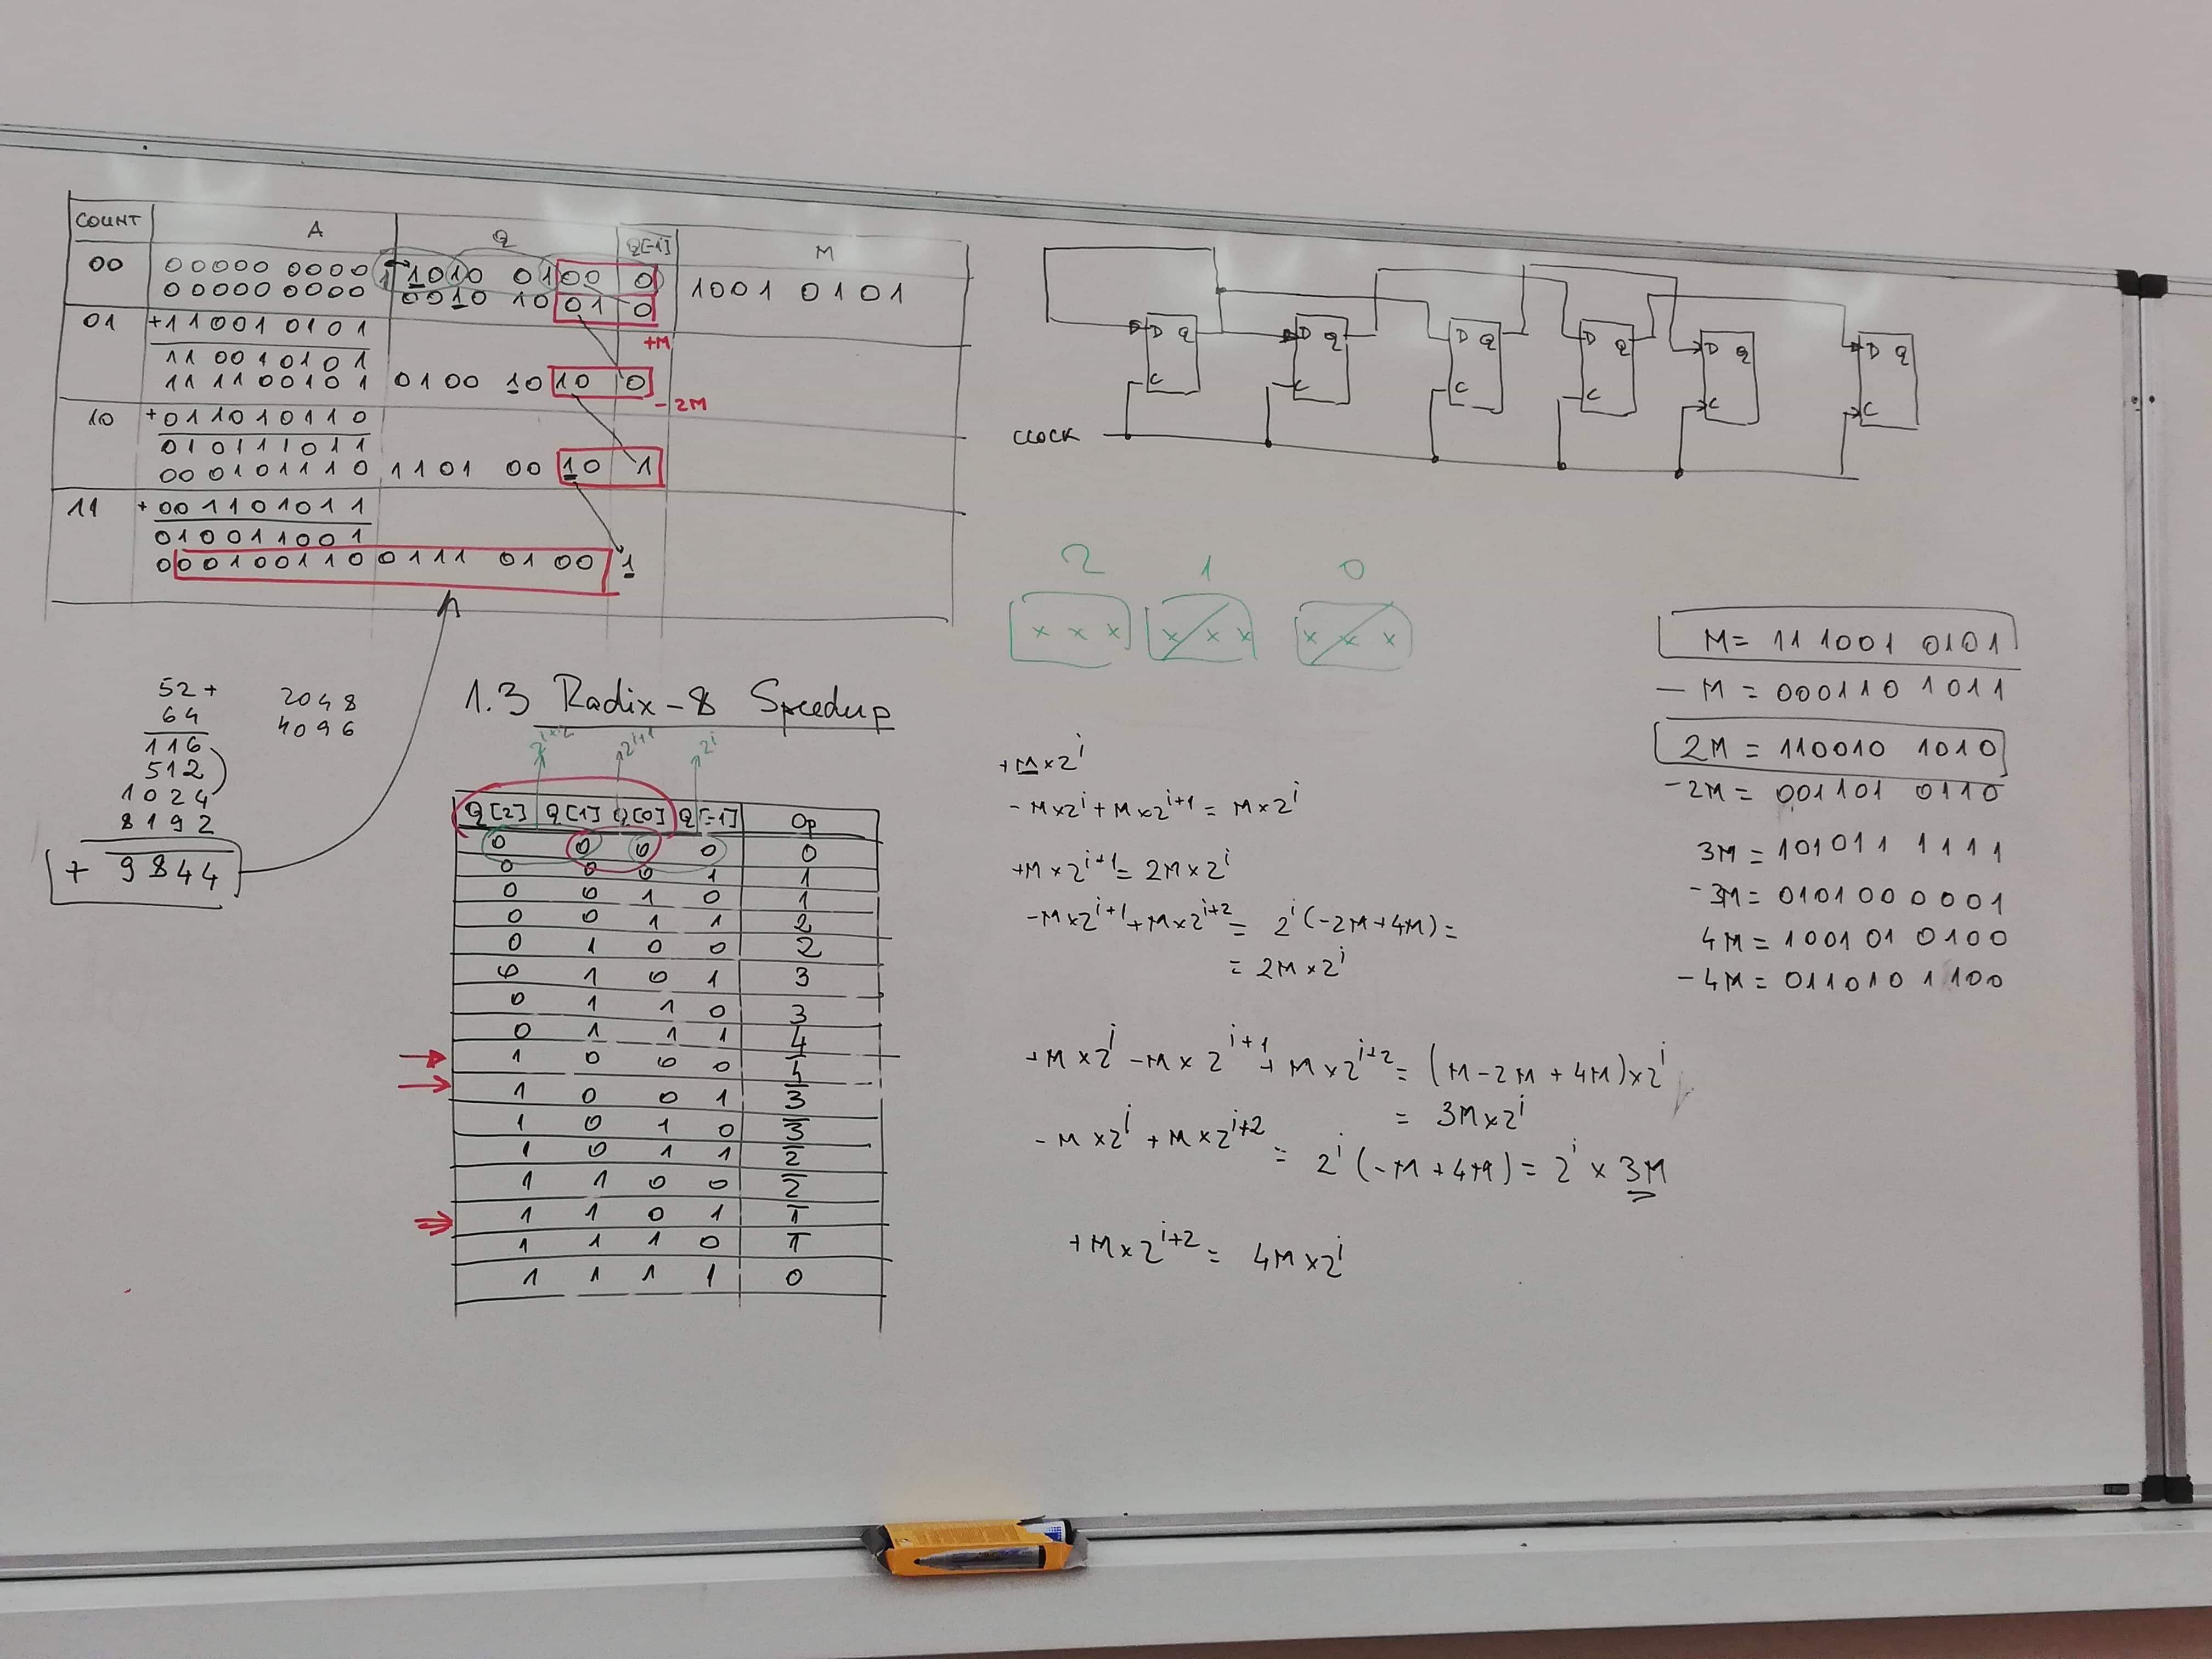 COUNT A Q Q[-1] M
00 00000 0000 1 1010 0100 0 1001 0101
00000 0000 0010 1001 0
01 +11 0010 0101
+M
11 0010 0101
11 1100101 0100 1010 0
-2M
10 +011010110
010111011
000101110 1101 0010 1
11 +001101011
010011001
0000100110 0111 0100 1
52+
64
116
512
1024
8192
+ 9844
2048
4096
CLOCK
D Q C
D Q C
D Q C
D Q C
D Q C
D Q C
2 1 0
x x x x x x x x x
1.3 Radix-8 Speedup
2^i+2 2^i+1 2^i
Q[2] Q[1] Q[0] Q[-1] Op
0 0 0 0 0
0 0 0 1 1
0 0 1 0 1
0 0 1 1 2
0 1 0 0 2
0 1 0 1 3
0 1 1 0 3
0 1 1 1 4
1 0 0 0 4̅
1 0 0 1 3̅
1 0 1 0 3̅
1 0 1 1 2̅
1 1 0 0 2̅
1 1 0 1 1̅
1 1 1 0 1̅
1 1 1 1 0
+M×2^i
-M×2^i+M×2^i+1 = M×2^i
+M×2^i+1 = 2M×2^i
-M×2^i+1+M×2^i+2 = 2^i(-2M+4M) =
= 2M×2^i
+M×2^i-M×2^i+1+M×2^i+2 = (M-2M+4M)×2^i
= 3M×2^i
-M×2^i+M×2^i+2 = 2^i(-M+4M) = 2^i × 3M
+M×2^i+2 = 4M×2^i
M= 111001 0101
-M = 000110 1011
2M = 110010 1010
-2M = 001101 0110
3M = 101011 1111
-3M = 010100 0001
4M = 100101 0100
-4M = 011010 1100